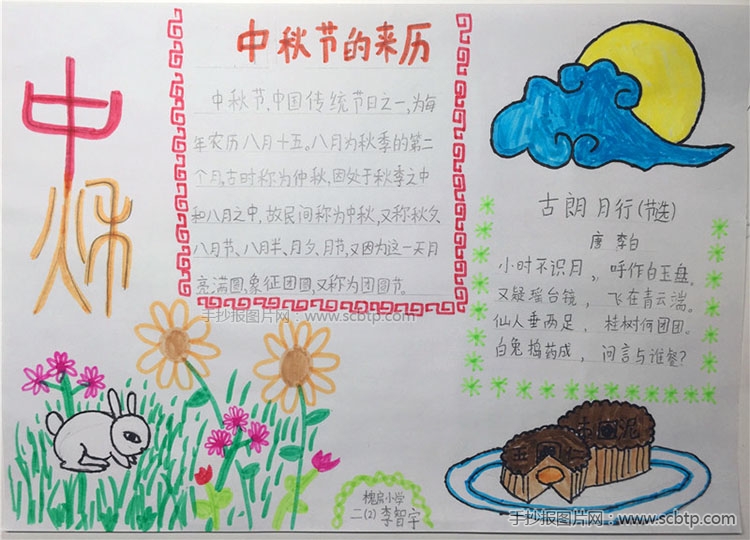 中秋
中秋节的来历
中秋节,中国传统节日之一,为每
年农历八月十五,八月为秋季的第二
个月,古时称为仲秋,因处于秋季之中
和八月之中,故民间称为中秋,又称秋夕、
八月节、八月半、月夕、月节,又因为这一天月
亮满圆,象征团圆,又称为团圆节。
手抄报图片网:www.scbtp.com
古朗月行(节选)
唐 李白
小时不识月,呼作白玉盘。
又疑瑶台镜,飞在青云端。
仙人垂两足,桂树何团团。
白兔捣药成,问言与谁餐?
槐店小学
二(2)李智宇
手抄报图片网:www.scbtp.com